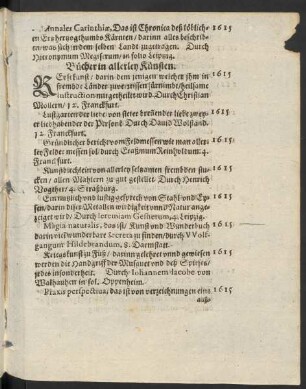 Annales Carinthiæ. Das ist Chronica deß löbliche- 1615
en Ertzhertzogthumbs Kärnten / darinn alles beschriben
en / was sich in dem selben Landt zugetragen. Durch
Hieronymum Megiserum, in folio Leipzig.
Bücher in allerley Künsten.
Reißkunst / darin dem jenigen welcher ihm in 1615
frembde Länder zuverreisen fürnimbt / heilsame
instruction mitgetheilet wird. Durch Christian
Möllern / 12. Franckfurt.
Lustgarten der liebe von steter brennder liebe zwey- 1615
er liebhabender der Person Durch David Wolßand.
12. Franckfurt.
Gründlicher bericht vom Feldmessen wie man aller- 1615
ley Felder messen sol / durch Erasmum Reinholdum. 4.
Franckf.
Kunstbüchlein von allerley selzamen frembden stu- 1615
cken / allen Mahlern zu gut gestellet. Durch Heinrich
Vogtherr / 4. Straßburg.
Ein nutzlich und lustig gespräch von Stahl und Ey- 1615
sen / darin diser Metallen
art wird / Durch Ieremiam Gesnerum, 4. Leipzig.
Magia naturalis, das ist / Kunst und Wunderbuch 1615
darin viel wunderbare Secreta zu finden / durch VVolf-
gangum Hildebrandum, 8. Darmstatt.
Kriegskunst zu Fuß / darinn gelehret vnnd gewiesen 1615
werden die Handgriff der Mußquet vnd deß Spiesses /
jedes insonderheit. Durch Iohannem Iacobe von
Walhausen in fol. Oppenheim.
Praxis perspectiva, das ist von verzeichnungen eine 1615
auß-